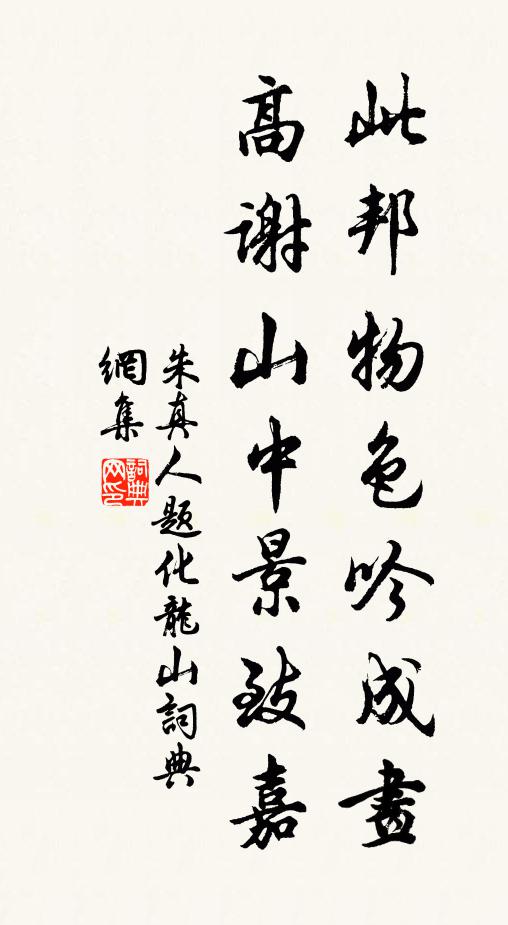 此邦物色吟成畫
高谢山中景致嘉
朱真人题化龍山詞典
網集
詞典网印